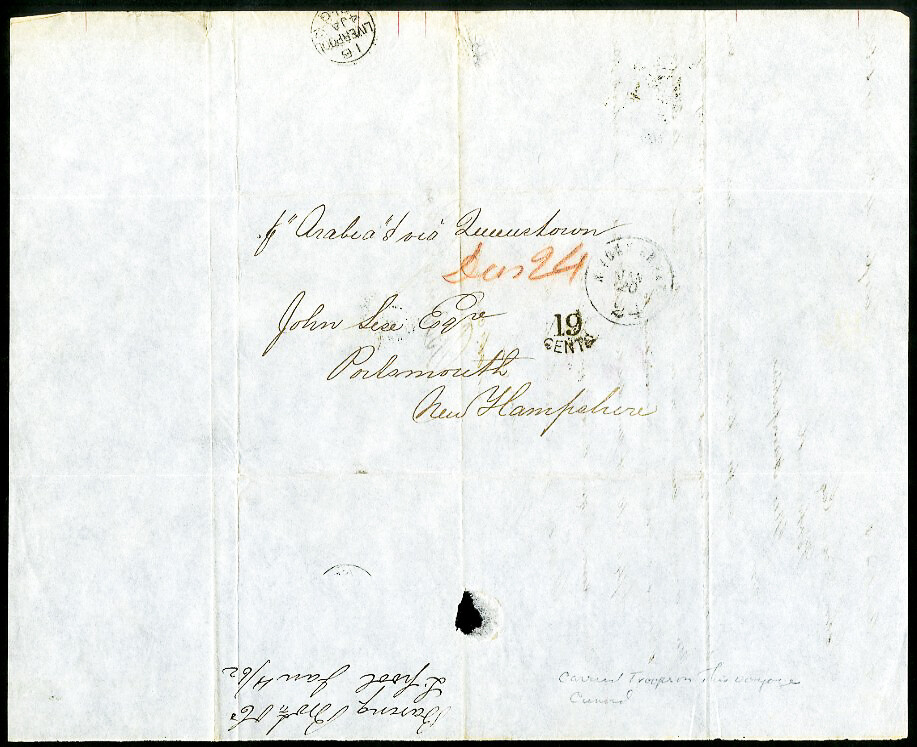 LIVERPOOL
4 JA
p "Arabia" via Queenstown
Due 24
24
John Sise Esqre
19
CENTS
Portsmouth
New Hampshire
Baring Broth & Co
L'pool Jan 4/62
Carried Troops on this voyage
Cunard